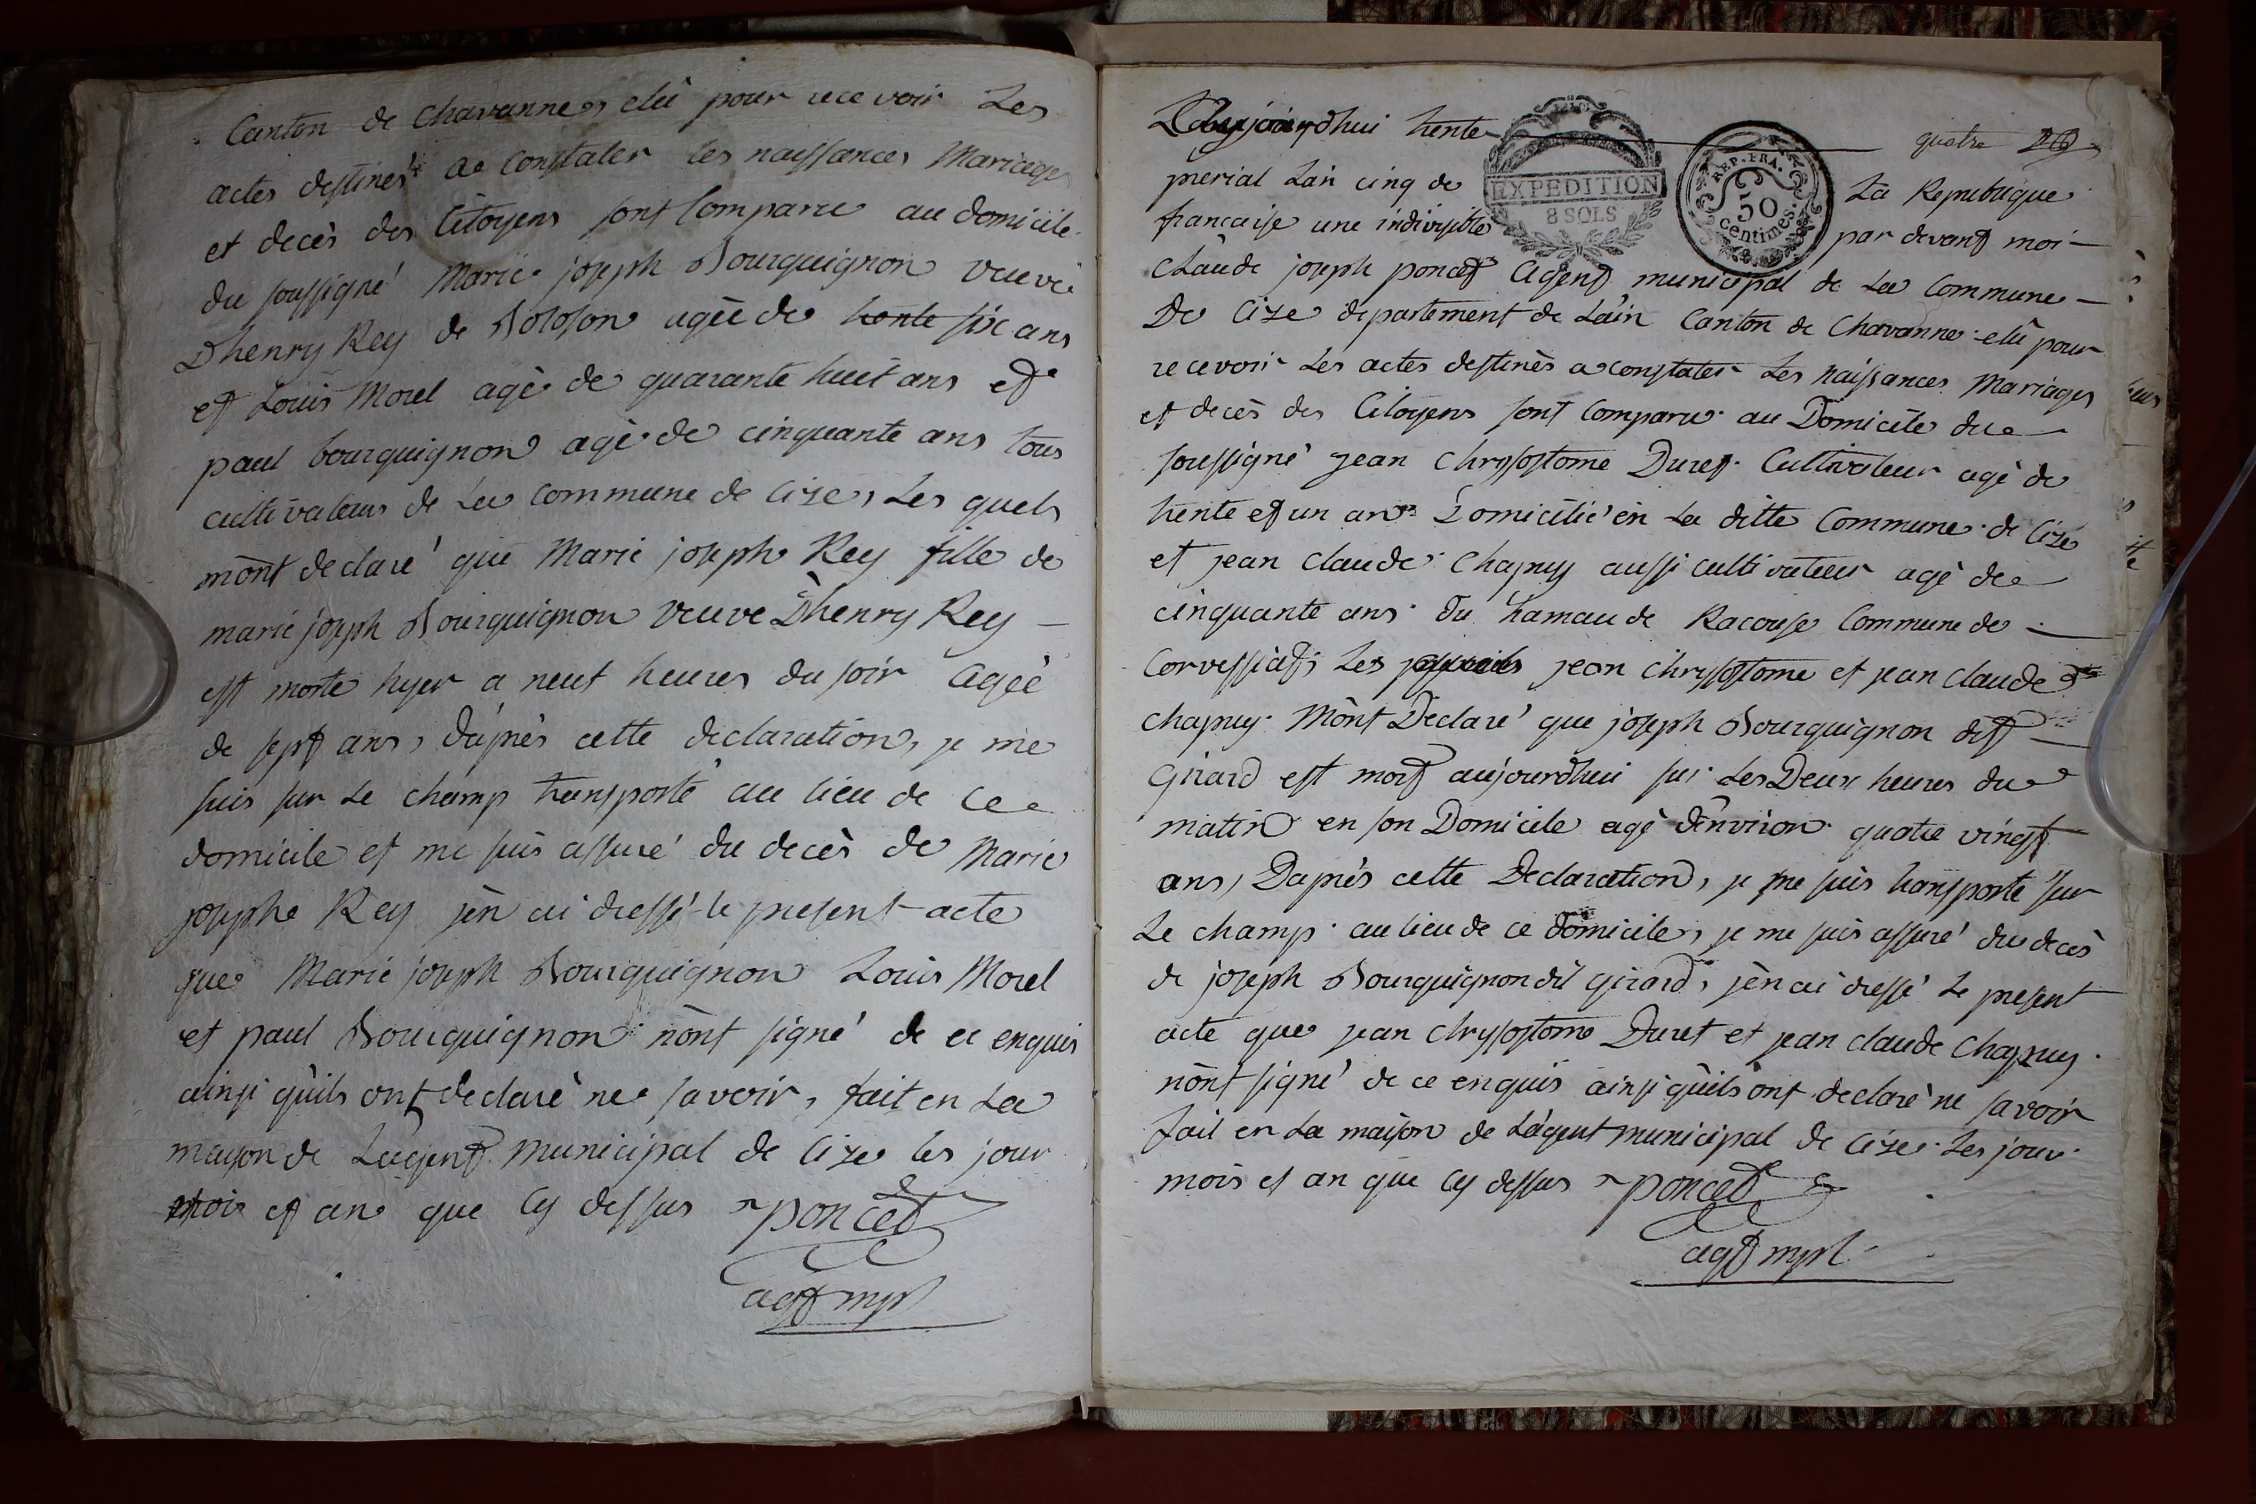 Canton de Chavannes, elû pour recevoir Les
actes destinés a Constater les naissances Mariages
et decès des Citoyens sont Comparu au domicile
du soussigné Marie joseph Bourguignon veuve
Dhenry Rey de Bolozon agée de trente six ans
et Louis Morel agé de quarante huit ans et
paul bourguignon agé de cinquante ans tous
cultivateurs de La commune de Cize, Les quels
mònt declaré que Marie joseph Rey fille de
marie joseph Bourguignon veuve Dhenry Rey
est morte hyer a neuf heures du soir agée
de sept ans, dáprès cette declaration, je me
suis sur Le champ transporté au lieu de ce
domicile et me suis assuré du decès de Marie
josephe Rey jèn ai dressé le present acte
que Marie joseph Bourguignon Louis Morel
et paul Bourguignon nònt signé de ce enquis
ainsi quìls ont declaré ne savoir, fait en La
mayson de Lagent municipal de Cize les jour
mois et an que Cy dessus Poncet
agt mpl
aujourdhui trente quatre
prerial Lan cinq de La Republique
francaise une indivisible par devant moi
Claude joseph poncet Agent municipal de La Commune
De Cize departement de Láin Canton de Chavanne elû pour
recevoir Les actes destinès a constater Les naissances Mariages
et decès des Citoyens sont Comparu au Domicile du
soussigné jean Chrysostome Duret Cultivateur agé de
trente et un ans Domicilié en La ditte Commune de Cize
et jean Claude Chapuy aussi cultivateur agé de
cinquante ans du hamau de Racouse Commune de
Corvessiat, Les jean Chrysostome et jean Claude
Chapuy Mònt Declaré que joseph Bourguignon dit
Girard est mort aujourdhui sur Les Deux heures du
matin en son Domicile agé dènviron quatre vingt
ans, Daprès cette Declaration, je me suis transporté sur
Le champ au lieu de ce domicile, je me suis assuré du decès
de joseph Bourguignon dit girard, jèn ai dressé Le present
acte que jean Chrysostome Duret et jean Claude Chapuy
nònt signé de ce enquis ainsi quìls ont declaré ne savoir
fait en La maison de Lágent municipal de Cize Les jour
mois et an que Cy dessus Poncet
agt mpl
EXPEDITION
8 SOLS
REP. FRA.
50
Centimes.